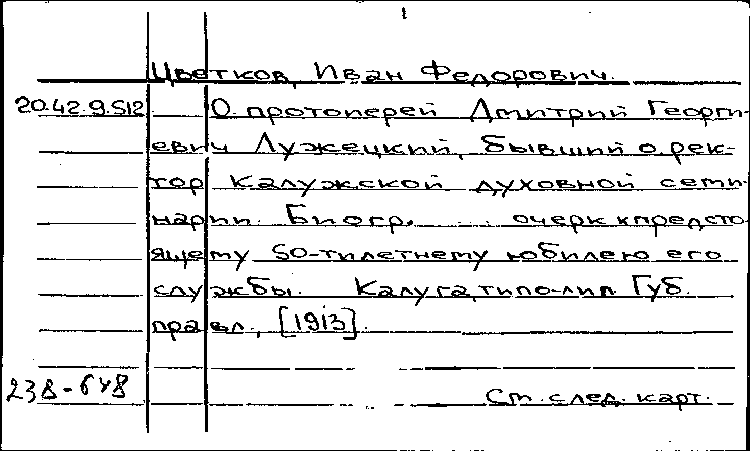 1
Цветков, Иван Федорович.
20.42.9.512 О. протоиерей Дмитрий Георги-
евич Лужецкий, бывший о. рек-
тор Калужской духовной семи-
нарии. Биогр. очерк к предсто-
ящему 50-тилетнему юбилею его
службы. Калуга, типо-лит. Губ.
правл., [1913].
238-648
См. след. карт.